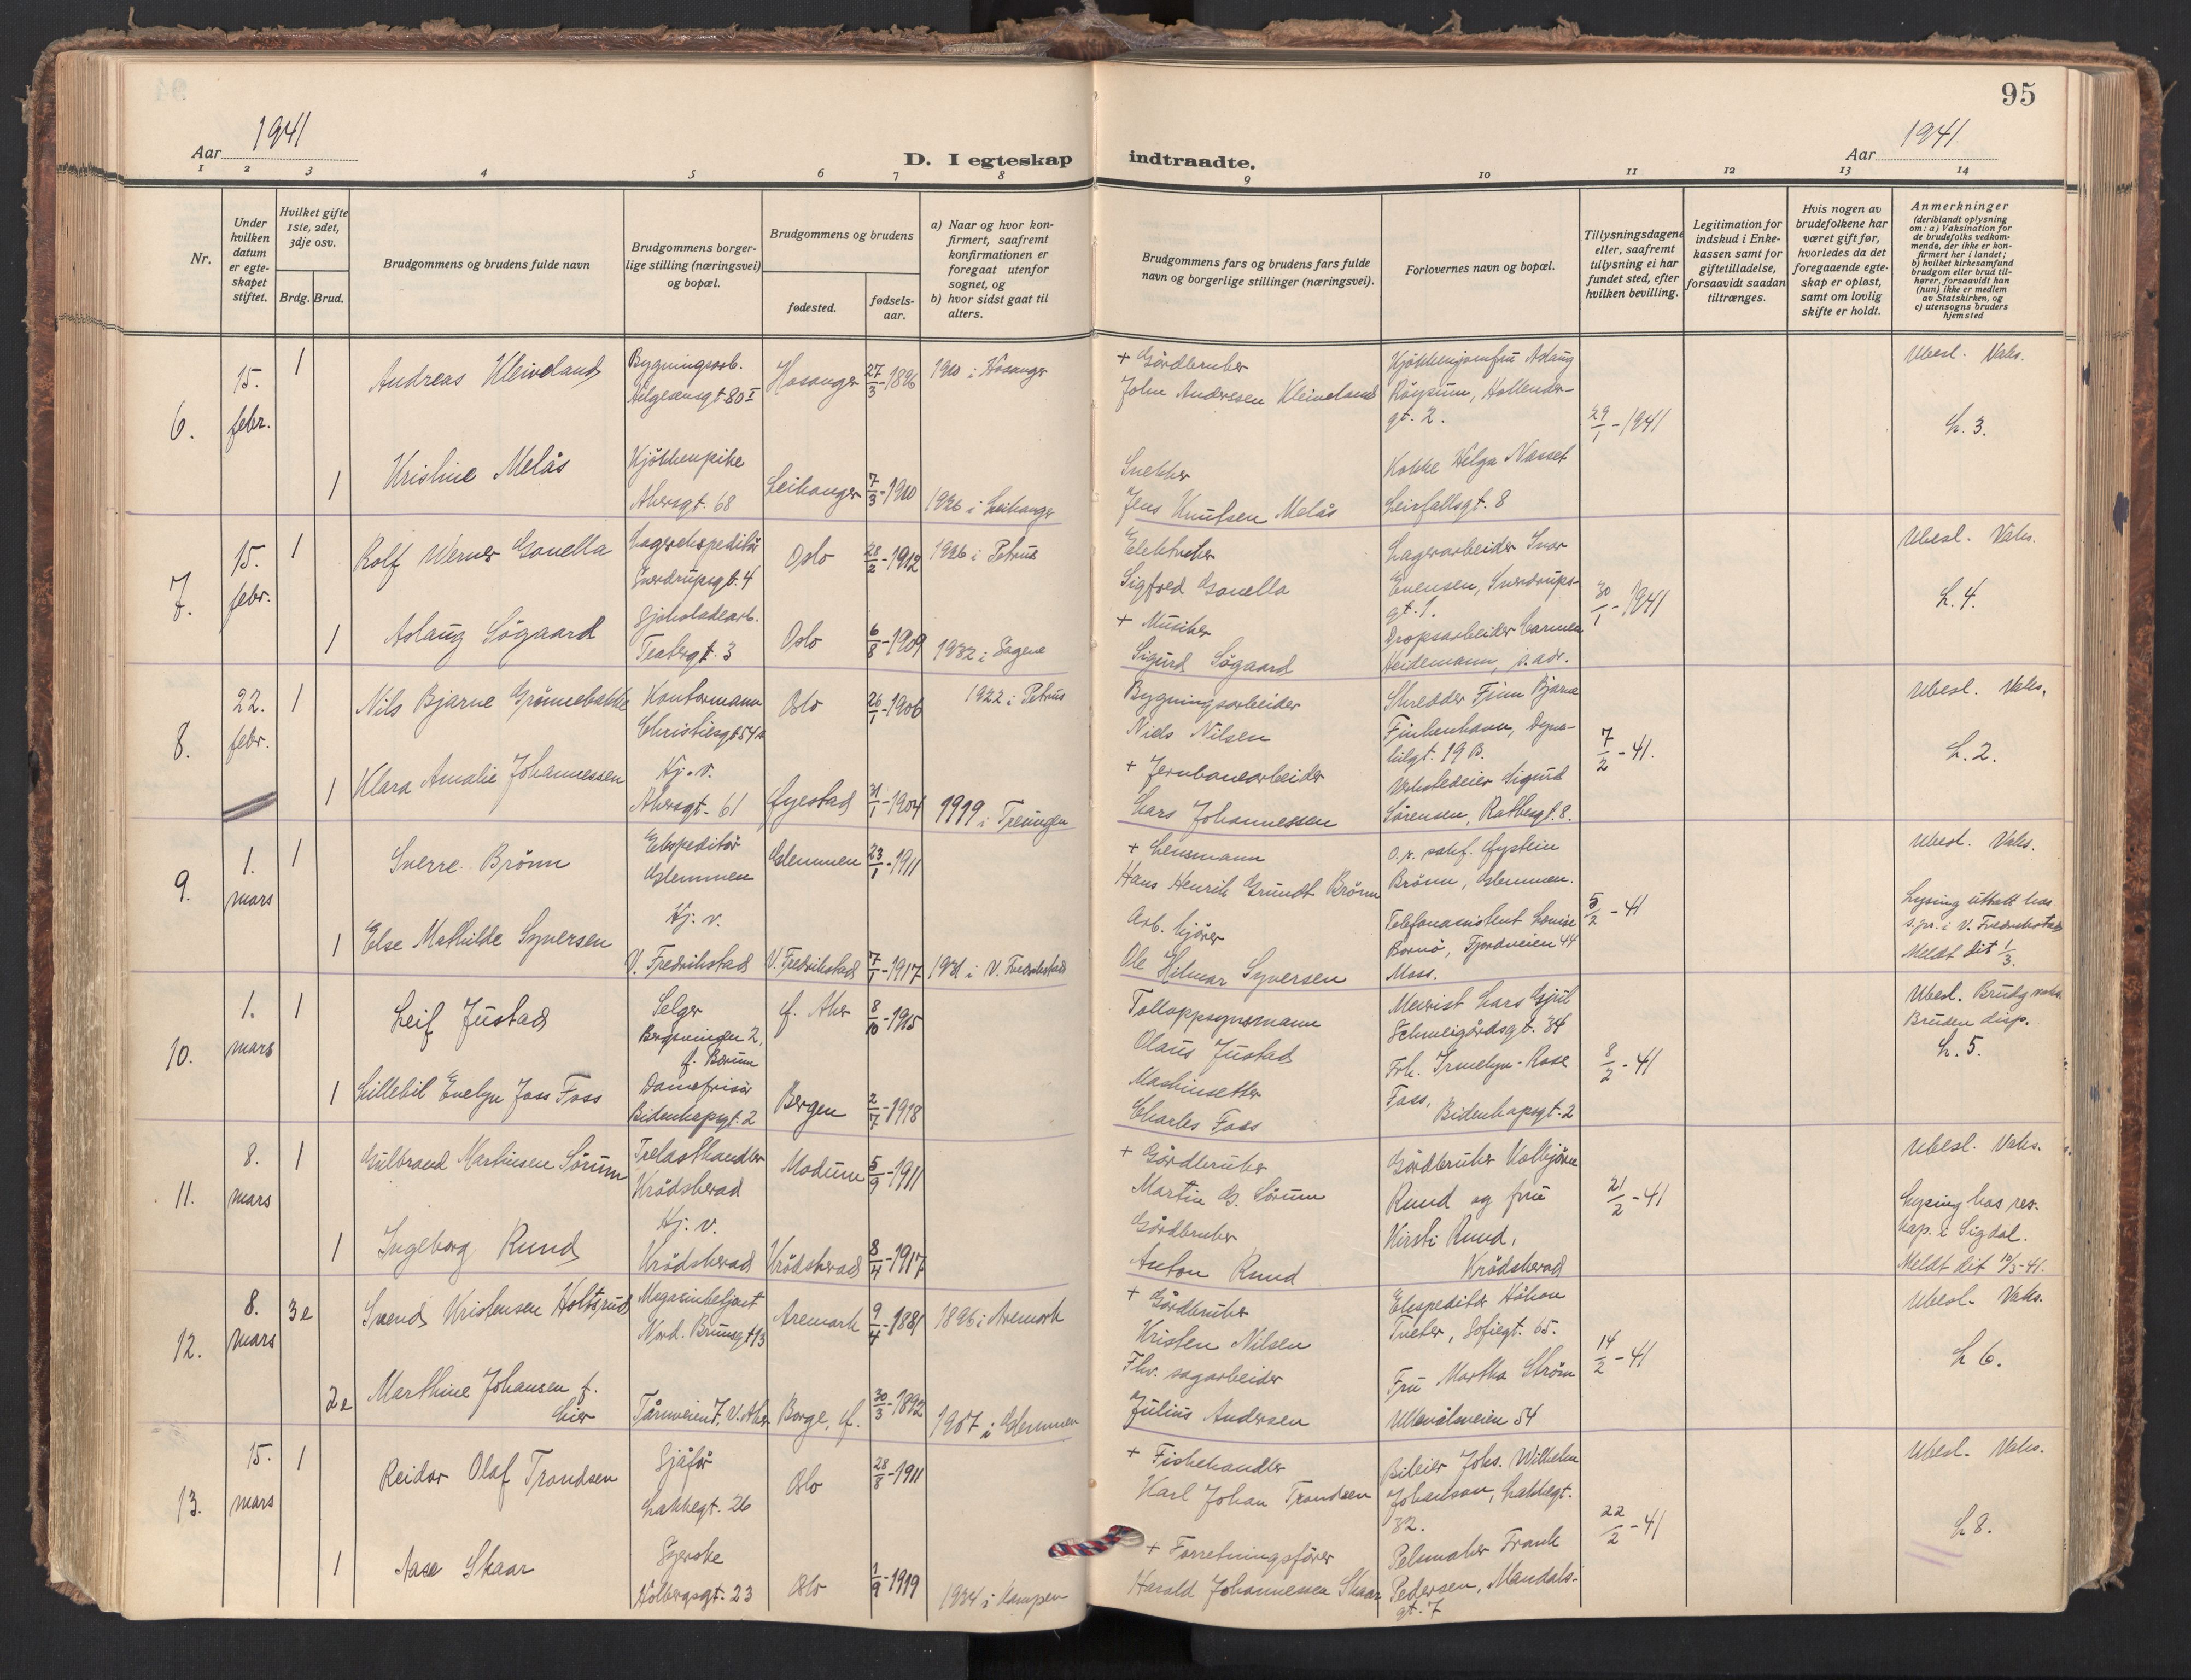 95
Aar 1941
D. I egteskap indtraadte.
Aar 1941
1 2 3 4 5 6 7 8 9 10 11 12 13 14
Nr.
Under hvilken datum er egteskapet stiftet.
Hvilket gifte 1ste, 2det, 3dje osv.
Brdg. Brud.
Brudgommens og brudens fulde navn
Brudgommens borgerlige stilling (næringsvei) og bopæl.
Brudgommens og brudens
fødested.
fødselsaar.
a) Naar og hvor konfirmert, saafremt konfirmationen er foregaat utenfor sognet, og
b) hvor sidst gaat til alters.
Brudgommens fars og brudens fars fulde navn og borgerlige stillinger (næringsvei).
Forlovernes navn og bopæl.
Tillysningsdagene eller, saafremt tillysning ei har fundet sted, efter hvilken bevilling.
Legitimation for indskud i Enkekassen samt for giftetilladelse, forsaavidt saadan tiltrænges.
Hvis nogen av brudefolkene har været gift før, hvorledes da det foregaaende egteskap er opløst, samt om lovlig skifte er holdt.
Anmerkninger
(deriblandt oplysning om: a) Vaksination for de brudefolks vedkommende, der ikke er konfirmert her i landet;
b) hvilket kirkesamfund brudgom eller brud tilhører, forsaavidt han (hun) ikke er medlem av Statskirken, og
c) utensogns bruders hjemsted
6. 15. febr. 1 Andreas Kleiveland Bygningsarb. Helgesensgt. 80 I Hosanger 27/3-1896 1910 i Hosanger
+ Gårdbruker John Andersen Kleiveland Kjøkkenjomfru Aslaug Røysum, Hollendergt. 2. 29/1-1941 Ubesl. Vaks. L. 3.
1 Kristine Melås Kjøkkenpike Akersgt. 68 Leikanger 7/3-1910 1926 i Leikanger
Snekker Jens Knutsen Melås Kokke Helga Nesset Leirfallsgt. 8
7. 15. febr. 1 Rolf Werner Gonella Lagerekspeditør Sverdrupsgt. 4 Oslo 28/2-1912 1926 i Petrus
Elektriker Sigfred Gonella Lagerarbeider Ivar Evensen, Sverdrupsgt. 1. 30/1-1941 Ubesl. Vaks. L. 4.
1 Aslaug Søgaard Sjokoladearb. Teatergt. 3 Oslo 6/8-1909 1932 i Sagene
+ Musiker Sigurd Søgaard Dropsarbeider Carmen Heidemann, s. adr.
8. 22. febr. 1 Nils Bjarne Grønnebakke Kontormann Christiesgt 54 Oslo 26/1-1906 1922 i Petrus
Bygningsarbeider Niels Nilsen Skredder Finn Bjarne Finkenhavn, 19 B. 7/2-41. Ubesl. Vaks. L. 2.
1 Klara Amalie Johannessen Hj. v. Akersgt. 61 Øyestad 31/1-1904 1919 i
+ Jernbanearbeider Lars Johannessen Verkstedeier Sigurd Sørensen, Rathkesgt. 8.
9. 1. mars 1 Sverre Brönn Ekspeditør Glemmen Glemmen 23/1-1911
+ Lensmann Hans Henrik Grundt Brönn O.r. sakf. Øystein Brönn, Glemmen. 5/2-41 Ubesl. Vaks.
1 Else Mathilde Syversen Hj. v. V. Fredrikstad V. Fredrikstad 7/1-1917 1931 i V. Fredrikstad
Arb. kjører Ole Hilmar Syversen Telefonassistent Louise Bornø, Fjordveien 44 Moss. Lysing uttatt hos s.pr. i V. Fredrikstad Meldt dit 1/3.
10. 1. mars 1 Leif Justad Selger Bergsvingen 2, Ø. Bærum Ø. Aker 8/10-1915
Tolloppsynsmann Olaus Justad Meierist Lars Gjul Schweigårdsgt. 34 8/2-41 Ubesl. Brudg. vaks. Bruden disp. L. 5.
1 Lillebil Evelyn Joss Foss Damefrisør Bidenkapsgt. 2 Bergen 2/7-1918
Maskinsetter Charles Foss Frk. Irmelyn-Rose Foss, Bidenkapsgt. 2
11. 8. mars 1 Gulbrand Martinsen Sörum Trelasthandler Krødsherad Modum 5/9-1911
+ Gårdbruker Martin G. Sörum Gårdbruker Kolbjørn Ruud og fru Kirsti Ruud, Krødsherad 21/2-41 Ubesl. Vaks.
1 Ingeborg Ruud Hj. v. Krødsherad Krødsherad 8/4-1917
Gårdbruker Anton Ruud Lysing hos res. kap. i Sigdal. Meldt dit 10/3-41.
12. 8. mars 3e Svend Kristensen Holtsrud Magasinbetjent Nord. Brunsgt 13 Aremark 9/4-1881 1896 i Aremark
+ Gårdbruker Kristen Nilsen Ekspeditør Håkon Tveter, Sofiegt. 65. 14/2-41 Ubesl. Vaks. L 6.
2e Marthine Johansen f. Lier Tårnveien 7, V. Aker Borge, Ø. 30/3-1892 1907 i Glemmen
Fhv. sagarbeider Julius Andersen Fru Martha Strøm Ullevålsveien 54
13. 15. mars 1 Reidar Olaf Trondsen Sjåfør Lakkegt. 26 Oslo 28/8-1911
+ Fiskehandler Karl Johan Trondsen Bileier Johs. Wilhelm Johanson, Lakkegt. 32. 22/2-41 Ubesl. Vaks. L 8.
1 Aase Skaar Syerske Holbergsgt. 23 Oslo 1/9-1919 1934 i Kampen
+ Forretningsfører Harald Johannessen Skaar Pelsmaker Frank Pedersen, Mandalsgt. 7